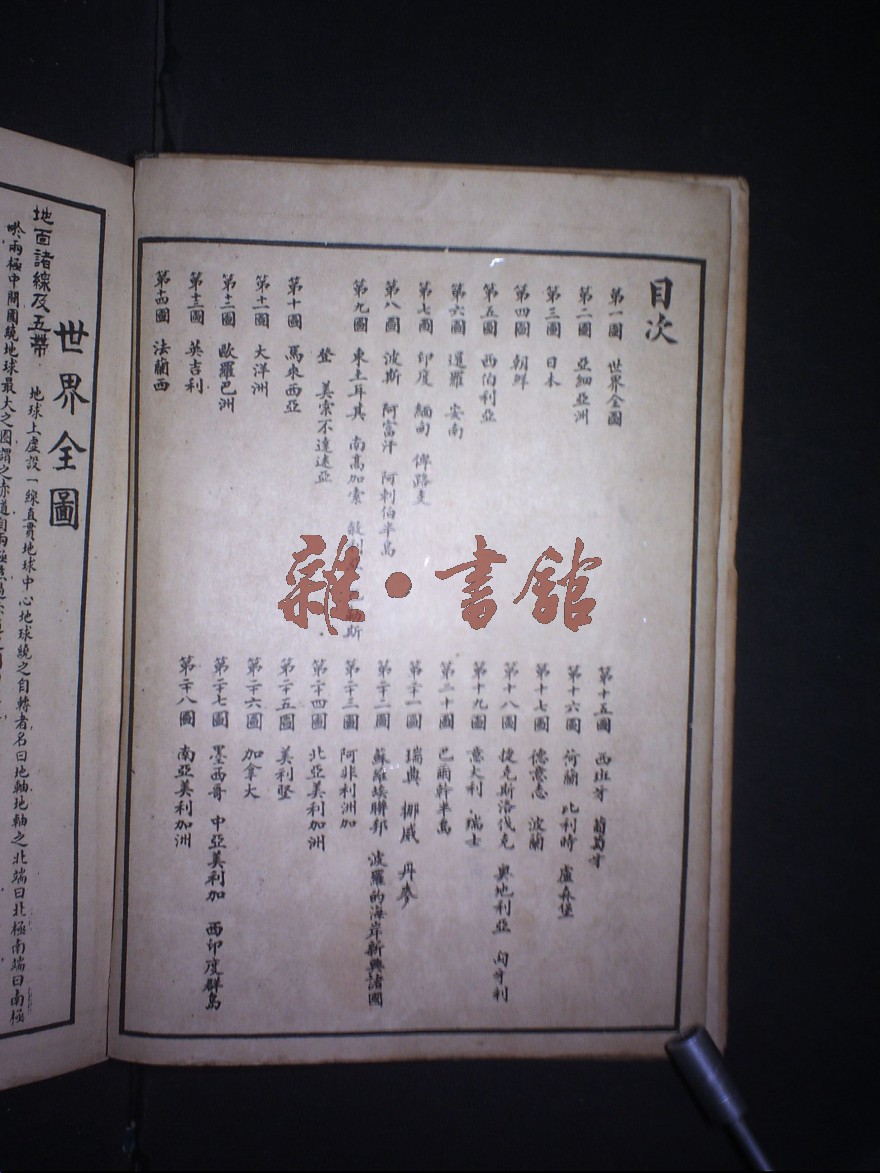 目次
第一圖 世界全圖
第二圖 亞細亞洲
第三圖 日本
第四圖 朝鮮
第五圖 西伯利亞
第六圖 暹羅 安南
第七圖 印度 緬甸 俾路支
第八圖 波斯 阿富汗 阿剌伯半島
第九圖 東土耳其 南高加索 敍利亞 斯
登 美索不達迷亞
第十圖 馬來西亞
第十一圖 大洋洲
第十二圖 歐羅巴洲
第十三圖 英吉利
第十四圖 法蘭西
第十五圖 西班牙 葡萄牙
第十六圖 荷蘭 比利時 盧森堡
第十七圖 德意志 波蘭
第十八圖 捷克斯洛伐克 奧地利亞 匈牙利
第十九圖 意大利 瑞士
第二十圖 巴爾幹半島
第二十一圖 瑞典 挪威 丹麥
第二十二圖 蘇維埃聯邦 波羅的海岸新興諸國
第二十三圖 阿非利加洲
第二十四圖 北亞美利加洲
第二十五圖 美利堅
第二十六圖 加拿大
第二十七圖 墨西哥 中亞美利加 西印度群島
第二十八圖 南亞美利加洲
雜·書館
世界全圖
地面諸線及五帶 地球上虛設一線直貫地球中心地球繞之自轉者名曰地軸地軸之北端曰北極南端曰南極
兩極中間圍繞地球最大之圈謂之赤道自兩極